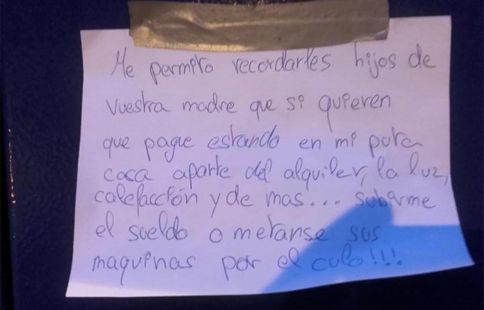 Me permito recordarles hijos de
vuestra madre que si quieren
que pague estando en mi puta
casa aparte del alquiler, la luz,
calefacción y de mas... subarme
el sueldo o metanse sus
maquinas por el culo!!!